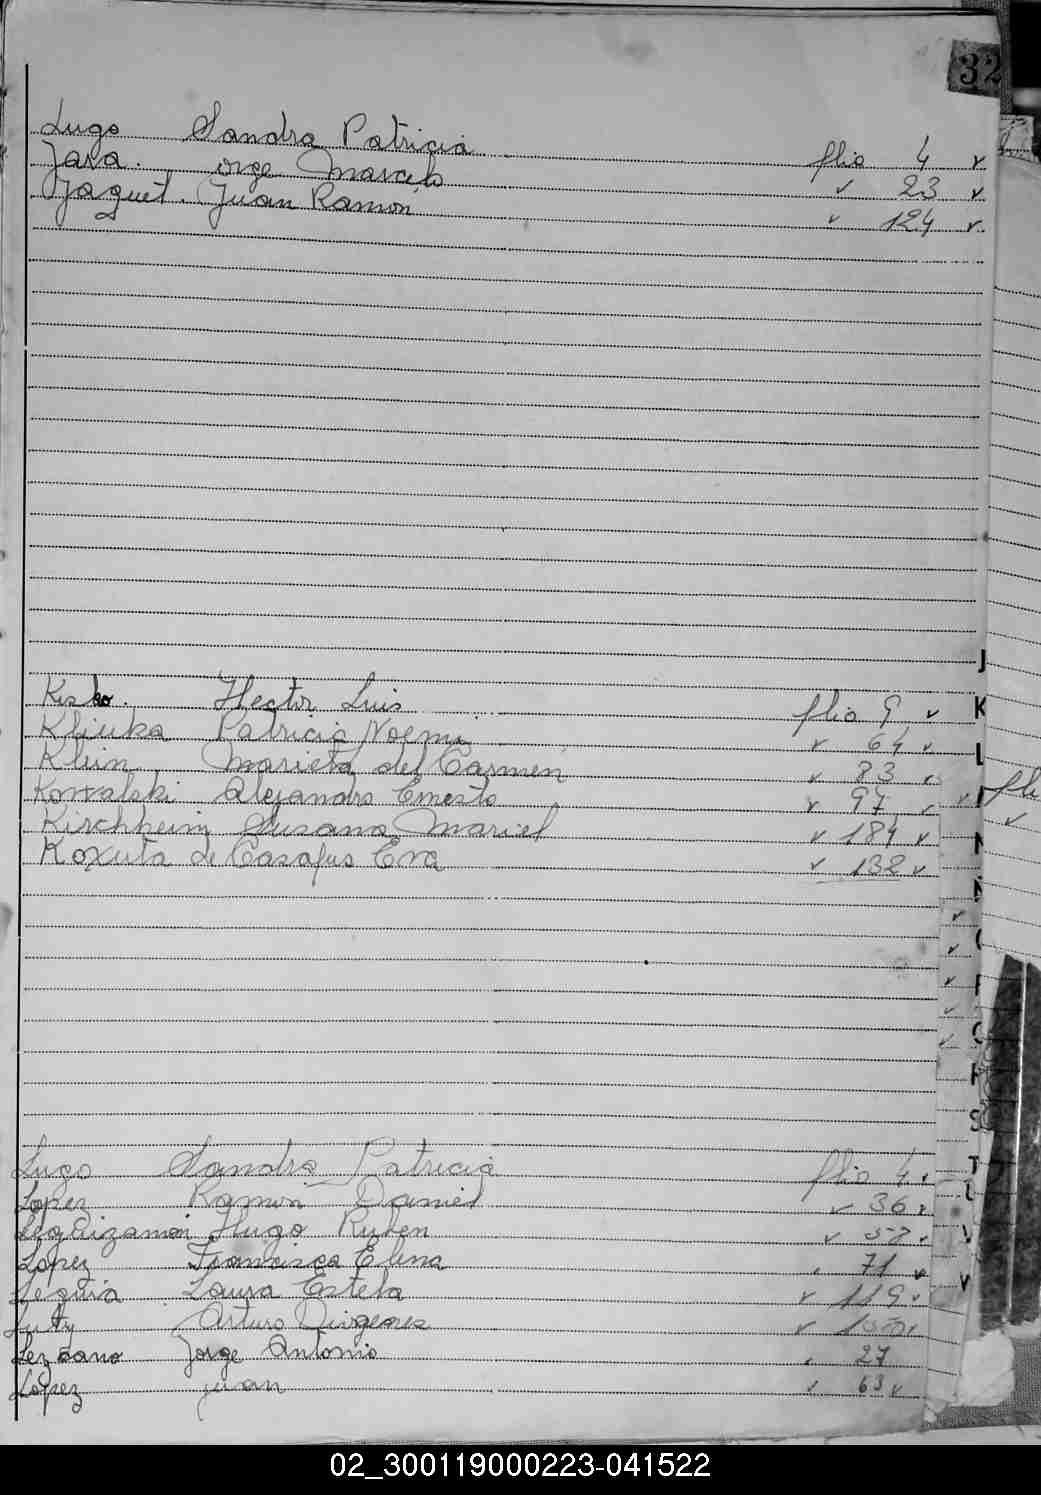 32
Lugo Sandra Patricia flio 4 v
Jara. Jorge Marcelo v 23 v
Jaquet. Juan Ramon v 124 v.
J
Kisko. Hector Luis flio 9 v
K
Kliuka Patricia Noemi v 64 v
L
Klein Marieta del Carmen v 83 v
Kowalski Alejandro Ernesto v 97 v
Kirchheim Susana Mariel v 184 v
N
Koxuta de Casafus Eva v 132 v
S
T
Lugo Sandra Patricia flio 4.
L
Lopez Ramon Daniel v 36 v
Hugo Ruben v
V
Lopez Francisca Elena 71 v
V
Leguia Laura Estela v 119 v
Luty Arturo Diogenes v
Lezcano Jorge Antonio 27
Lopez juan v 63 v
02_300119000223-041522